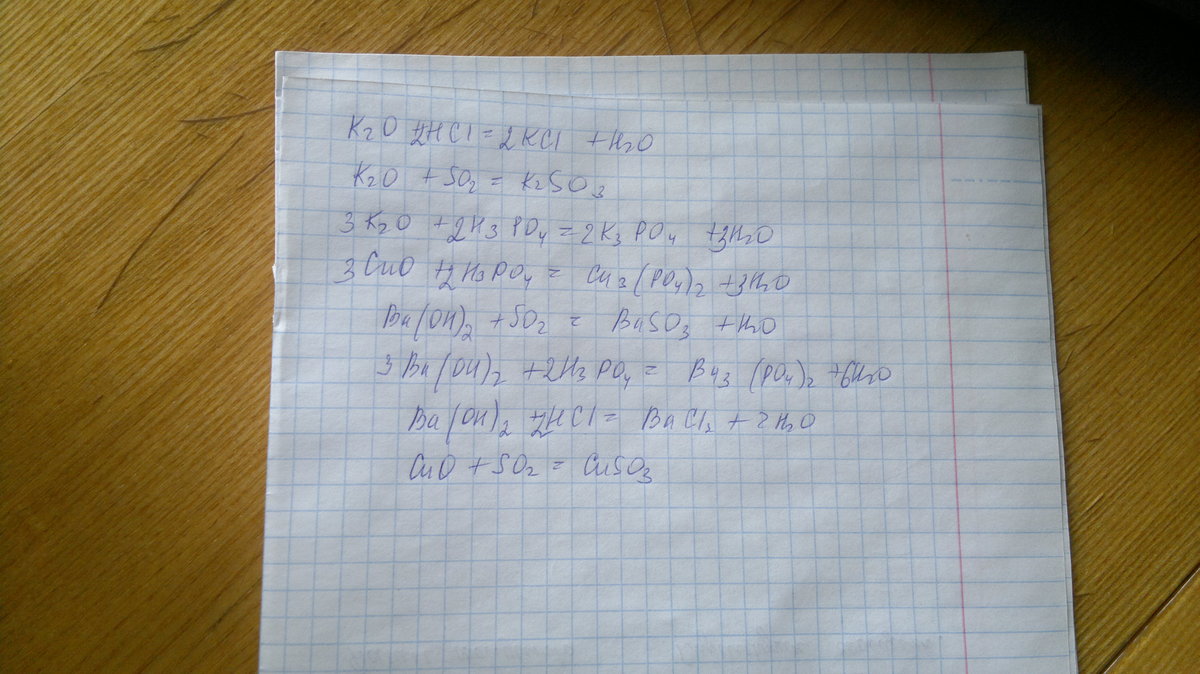 K₂O +2HCl = 2KCl + H₂O
K₂O + SO₂ = K₂SO₃
3K₂O + 2H₃PO₄ = 2K₃PO₄ + 3H₂O
3CuO + 2H₃PO₄ = Cu₃(PO₄)₂ + 3H₂O
Ba(OH)₂ + SO₂ = BaSO₃ + H₂O
3Ba(OH)₂ + 2H₃PO₄ = Ba₃(PO₄)₂ + 6H₂O
Ba(OH)₂ + 2HCl = BaCl₂ + 2H₂O
CuO + SO₂ = CuSO₃